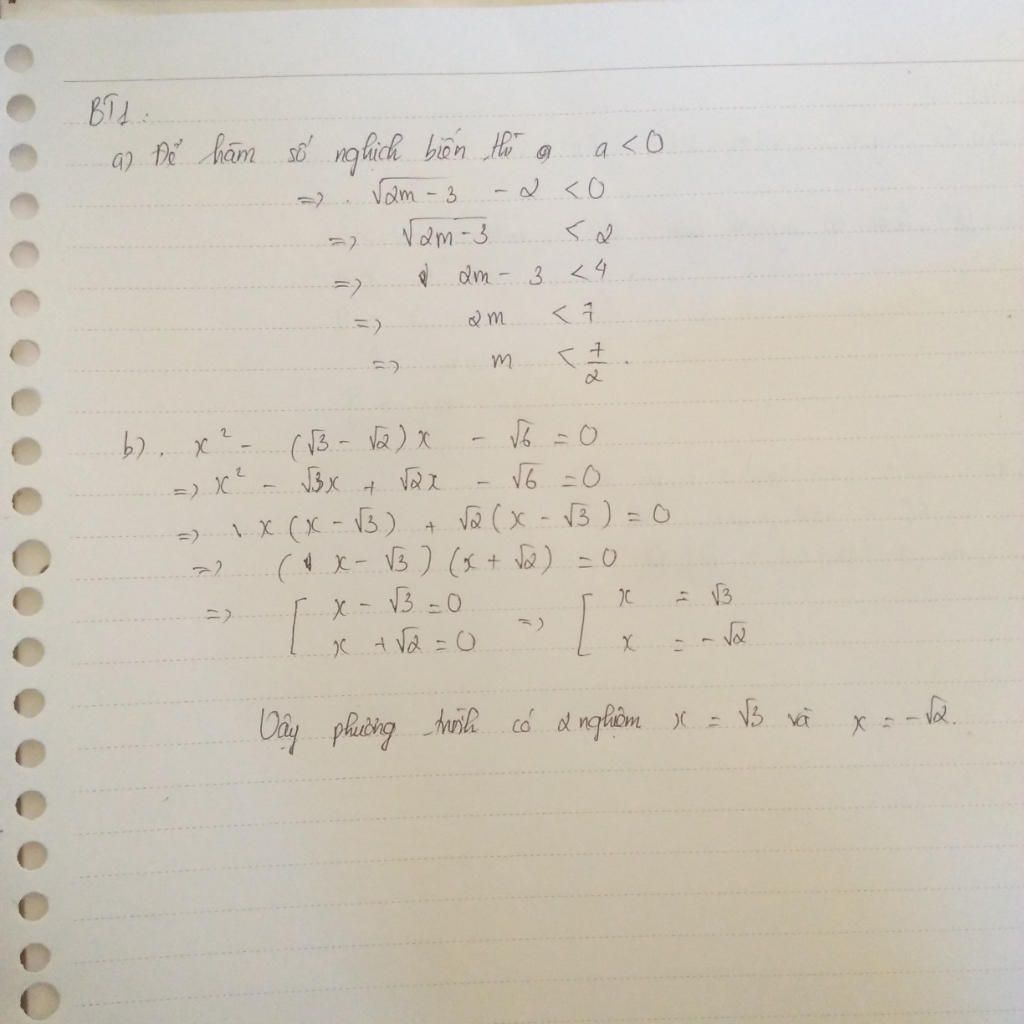 BT1:
a) Để hàm số nghịch biến thì a < 0
=> √(2m - 3) - 2 < 0
=> √(2m - 3) < 2
=> 2m - 3 < 4
=> 2m < 7
=> m < 7/2.
b). x² - (√3 - √2)x - √6 = 0
=> x² - √3x + √2x - √6 = 0
=> x(x - √3) + √2(x - √3) = 0
=> (x - √3)(x + √2) = 0
=> [ x - √3 = 0 => [ x = √3
x + √2 = 0 x = -√2
Vậy phương trình có 2 nghiệm x = √3 và x = -√2.